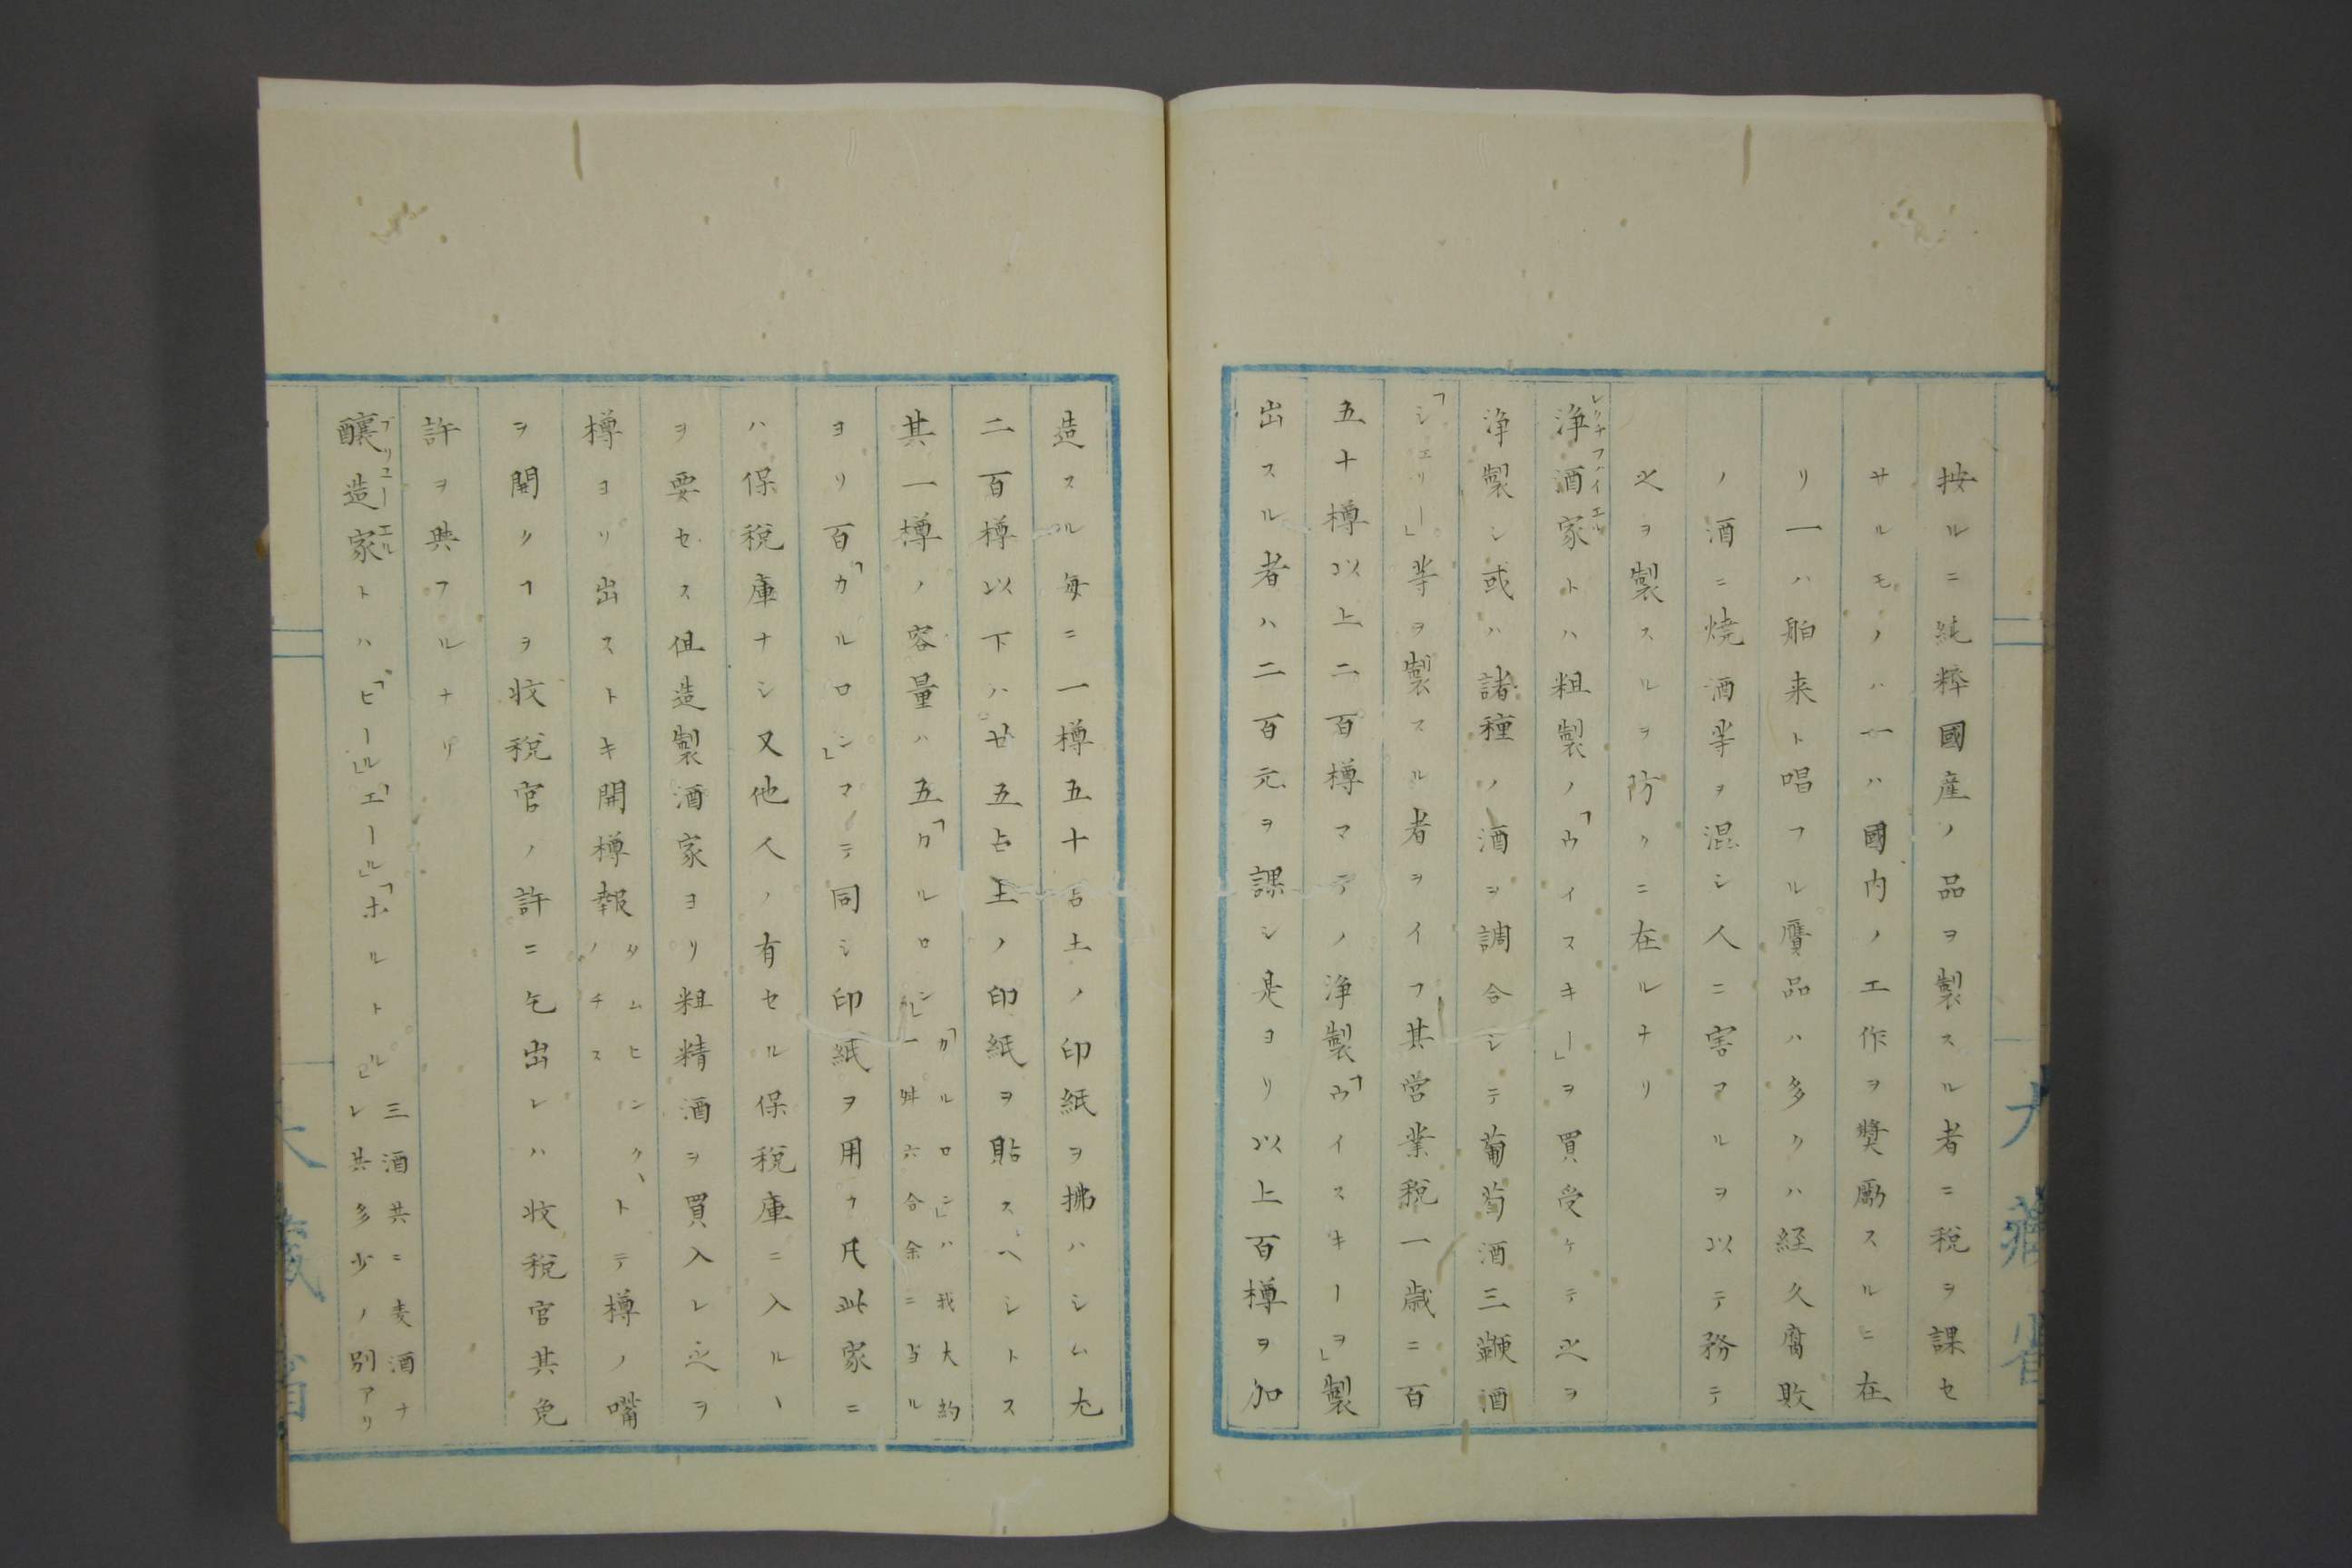 按ルニ純粹國産ノ品ヲ製スル者ニ税ヲ課セ
サルモノハ一ハ國内ノ工作ヲ奬勵スルニ在
リ一ハ舶来ト唱フル贋品ハ多クハ経久腐敗
ノ酒ニ焼酒等ヲ混シ人ニ害アルヲ以テ務テ
之ヲ製スルヲ防クニ在ルナリ
浄酒家トハ粗製ノ「ウイスキー」ヲ買受ケテ之ヲ
レクチファイエル
浄製シ或ハ諸種ノ酒ヲ調合シテ葡萄酒三鞭酒
「シェリー」等ヲ製スル者ヲイフ其営業税一歳ニ百
五十樽以上二百樽マテノ浄製「ウイスキーヲ」製
出スル者ハ二百元ヲ課シ是ヨリ以上百樽ヲ加
大藏省
造スル毎ニ一樽五十㐂土ノ印紙ヲ拂ハシム尤
二百樽以下ハ廿五㐂土ノ印紙ヲ貼スヘシトス
其一樽ノ容量ハ五「カルロシ」「カルロシ」ハ我大約一舛六合余ニ当ル
ヨリ百「カルロシ」マテ同シ印紙ヲ用ウ凡此家ニ
ハ保税庫ナシ又他人ノ有セル保税庫ニ入ルヽ
ヲ要セス但造製酒家ヨリ粗精酒ヲ買入レ之ヲ
樽ヨリ出ストキ開樽報タムヒンクヽノチストテ樽ノ嘴
ヲ開クヿヲ收税官ノ許ニ乞出レハ收税官其免
許ヲ與フルナリ
釀造家トハ「ビール」「エール」「ホルトル」三酒共ニ麦酒ナレ共多少ノ別アリ
ブリューエル
大藏省